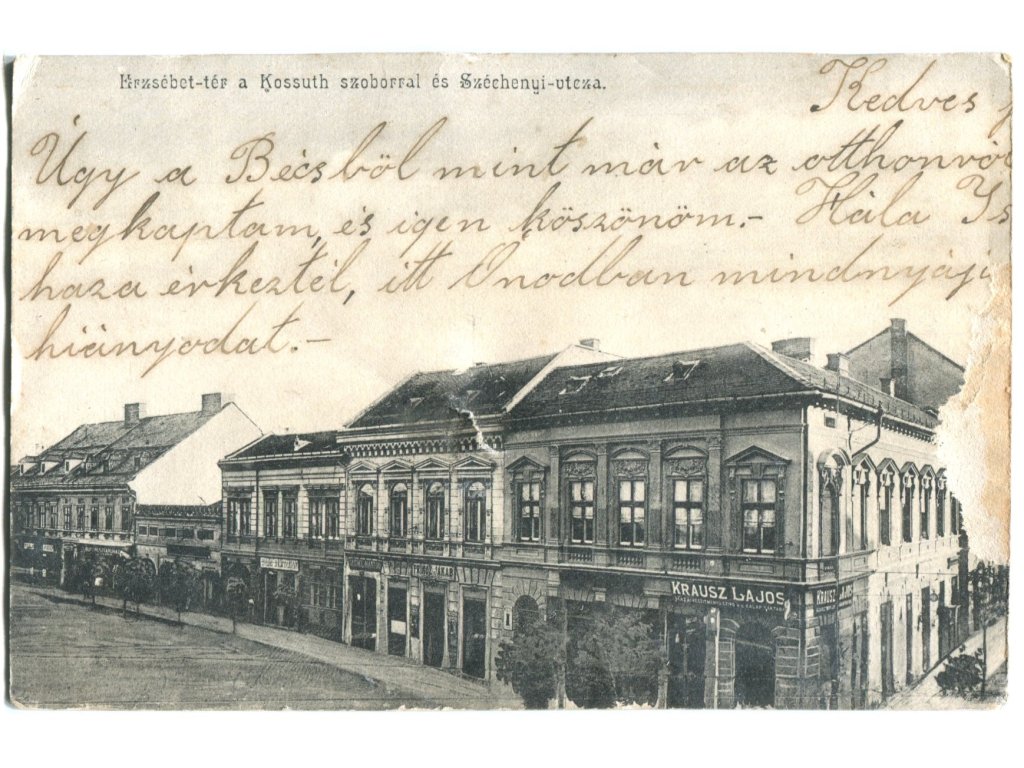 Erzsébet-tér a Kossuth szoborral és Széchenyi-utcza.
Kedves
Úgy a Bécsből mint már az otthonról
megkaptam, és igen köszönöm.- Hála Is
haza érkeztél, itt Ónodban mindnyáji
hiányodat.-
KRAUSZ LAJOS
KRAUSZ LAJOS